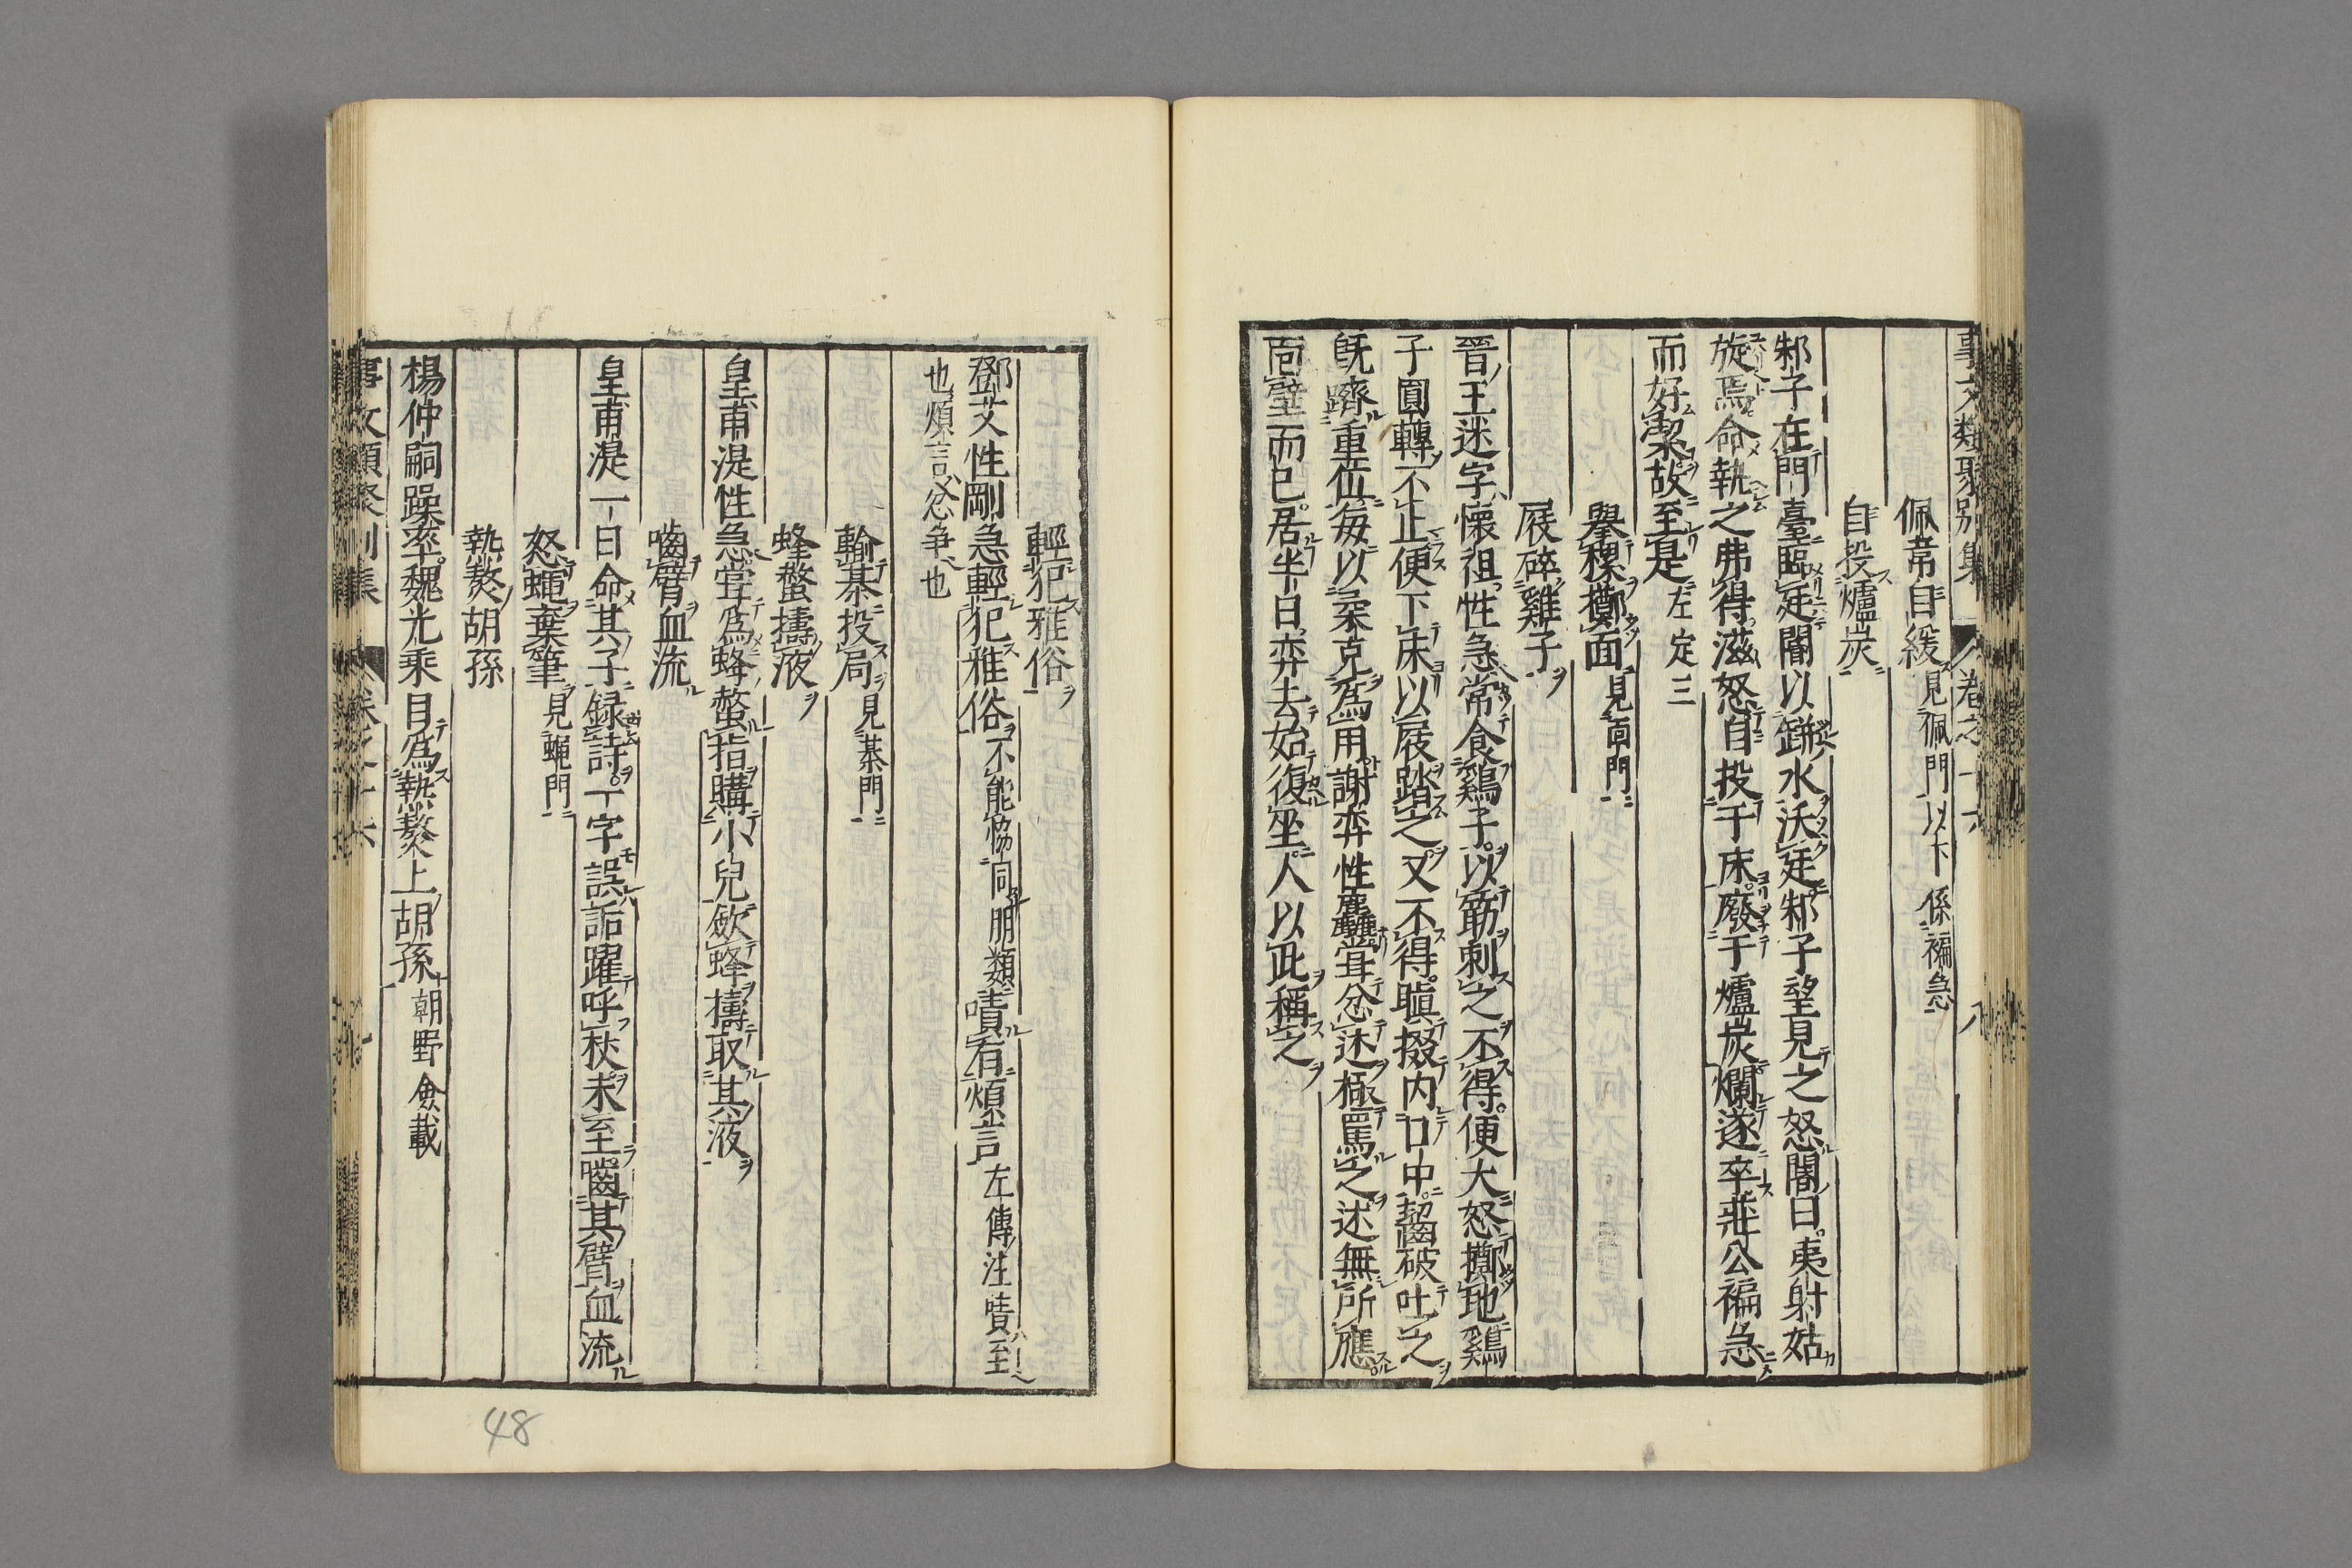 事文類聚別集 卷之二十六 八
佩韋自緩 見佩門以下係褊急
自投爐炭
邾子在門臺臨廷閽以缾水沃廷邾子望見之怒閽曰夷射姑
旋焉命執之弗得滋怒自投于床廢于爐炭爛遂卒莊公褊急
而好潔故至是 左定三
舉樏擲面 見面門
屐碎雞子
晉王述字懷祖性急常食鷄子以筯刺之不得便大怒擲地鷄
子圓轉不止便下床以屐踏之又不得瞋掇内口中齧破吐之
既躋重位每以柔克爲用謝弈性麤嘗忿述極罵之述無所應
面壁而已居半日弈去始復坐人以此稱之
輕犯雅俗
鄧艾性剛急輕犯雅俗不能恊同朋類嘖有煩言 左傳注嘖至
也煩言忿争也
輸棊投局 見棊門
蜂螫擣液
皇甫湜性急嘗爲蜂螫指購小兒歛蜂擣取其液
嚙臂血流
皇甫湜一日命其子録詩一字誤詬躍呼杖未至嚙其臂血流
怒蠅棄筆 見蠅門
熱熬胡孫
楊仲嗣躁率魏光乘目爲熱熬上胡孫 朝野僉載
48